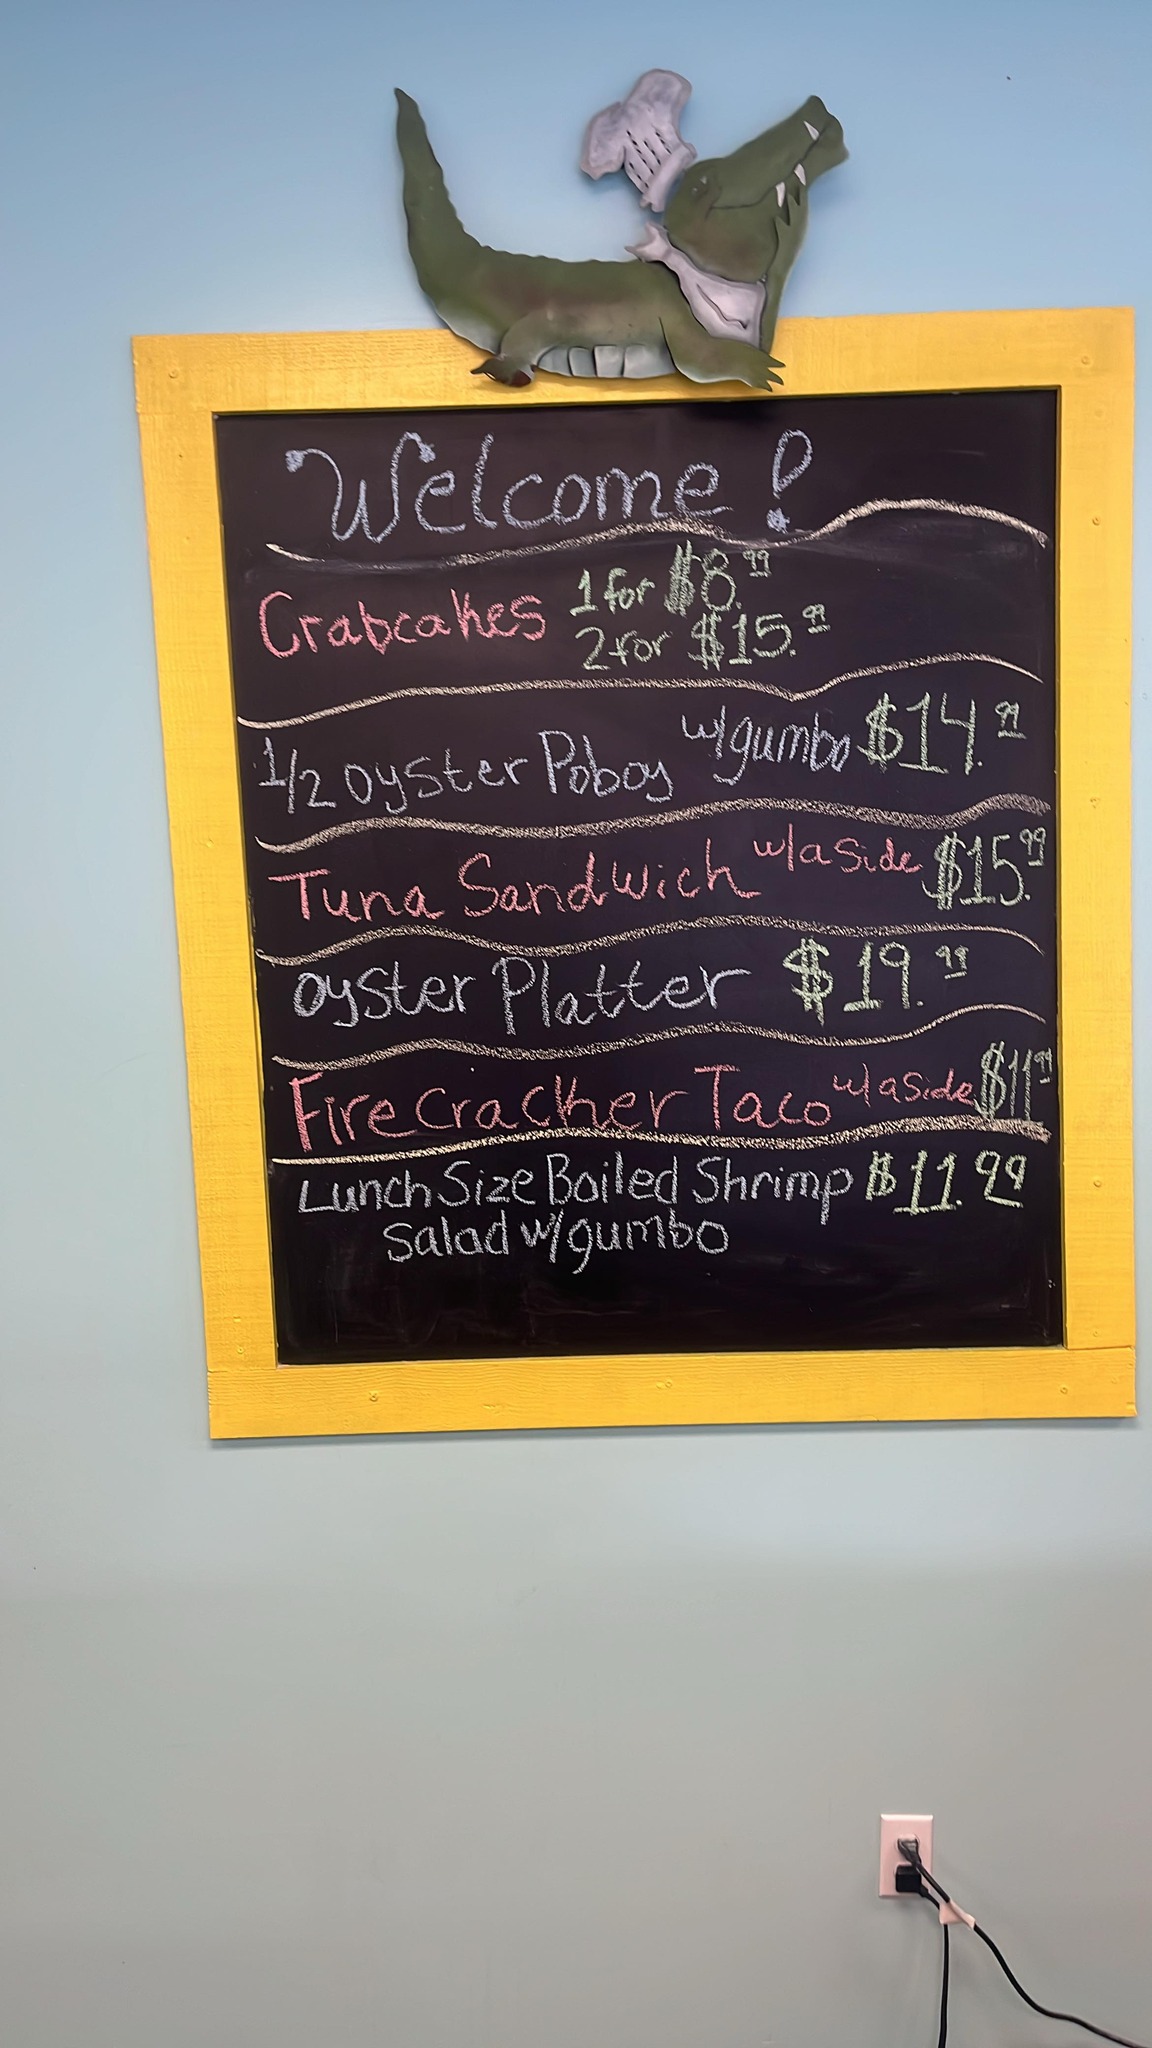 Welcome!
Crabcakes 1 for $8.99
2 for $15.99
1/2 oyster Poboy w/gumbo $14.99
Tuna Sandwich w/a side $15.99
oyster Platter $19.99
Firecracker Taco w/a side $11.99
Lunch Size Boiled Shrimp $11.99
Salad w/gumbo